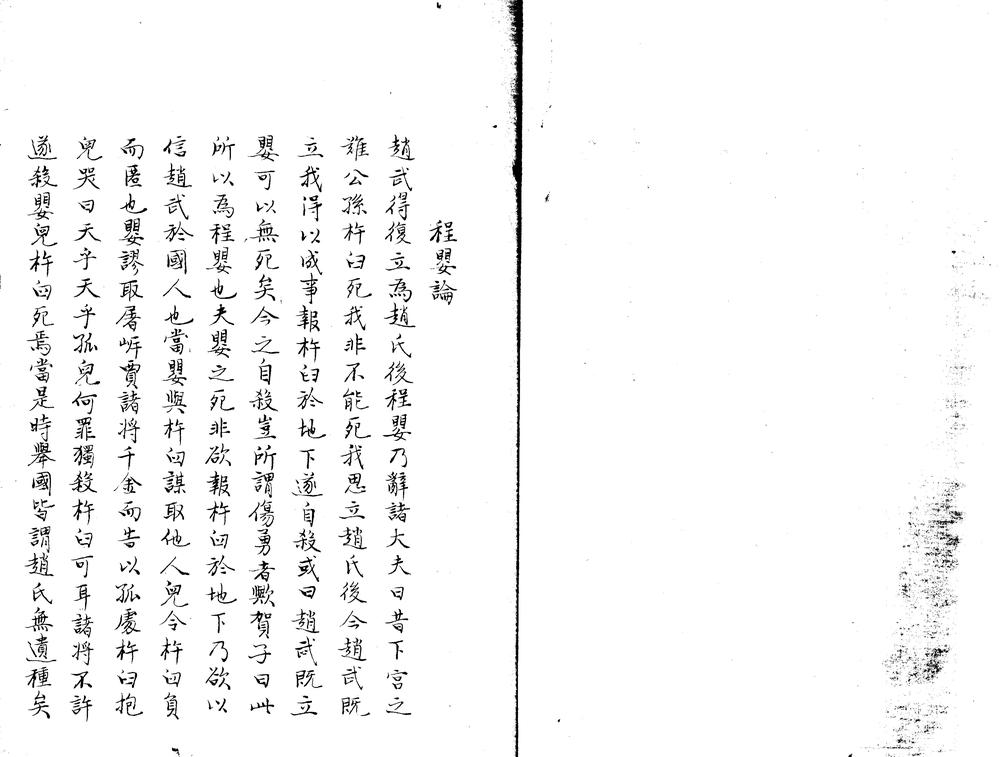 程嬰論
趙武得復立為趙氏後程嬰乃辭諸大夫曰昔下宮之
難公孫杵臼死我非不能死我思立趙氏後今趙武既
立我得以成事報杵臼於地下遂自殺或曰趙武既立
嬰可以無死矣今之自殺豈所謂傷勇者歟賀子曰此
所以爲程嬰也夫嬰之死非欲報杵臼於地下乃欲以
信趙武於國人也當嬰與杵臼謀取他人兒令杵臼負
而匿也嬰謬取屠岸賈諸將千金而告以孤處杵臼抱
兒哭曰天乎天乎孤兒何罪獨殺杵臼可耳諸將不許
遂殺嬰兒杵臼死焉當是時舉國皆謂趙氏無遺種矣